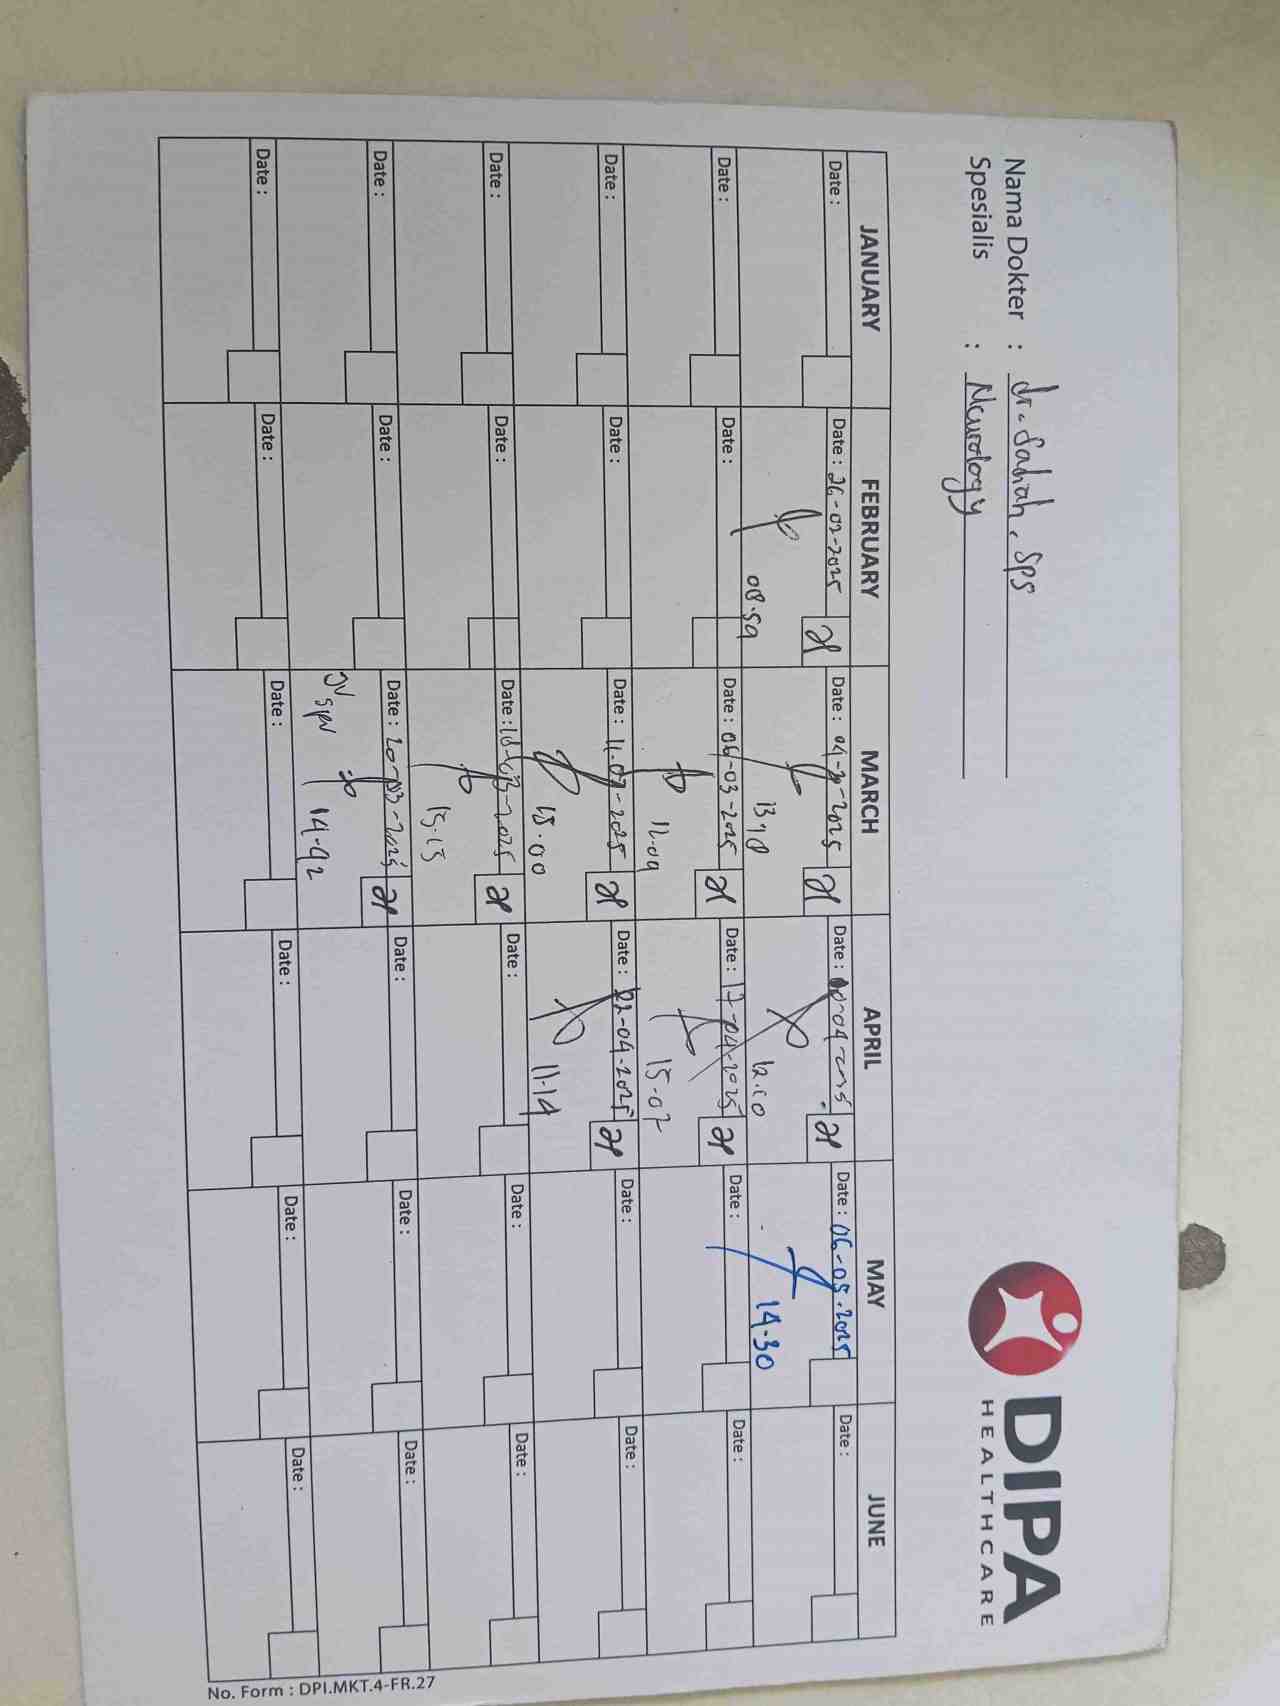 Nama Dokter : dr. Sabiah, SpS
Spesialis : Neurology
DIPA
HEALTHCARE
JANUARY FEBRUARY MARCH APRIL MAY JUNE
Date : Date : 26-02-2025 Date : 04-3-2025 Date : -04-2025 Date : 06-05-2025 Date :
08.59 13.18 12.10 14.30
Date : Date : Date : 06-03-2025 Date : 17-04-2025 Date : Date :
11.09 15.07
Date : Date : Date : 11-03-2025 Date : 22-04-2025 Date : Date :
15.00 11.14
Date : Date : Date : 18-03-2025 Date : Date : Date :
15.15
Date : Date : Date : 20-03-2025 Date : Date : Date :
JV spv 14-42
Date : Date : Date : Date : Date : Date :
No. Form : DPI.MKT.4-FR.27